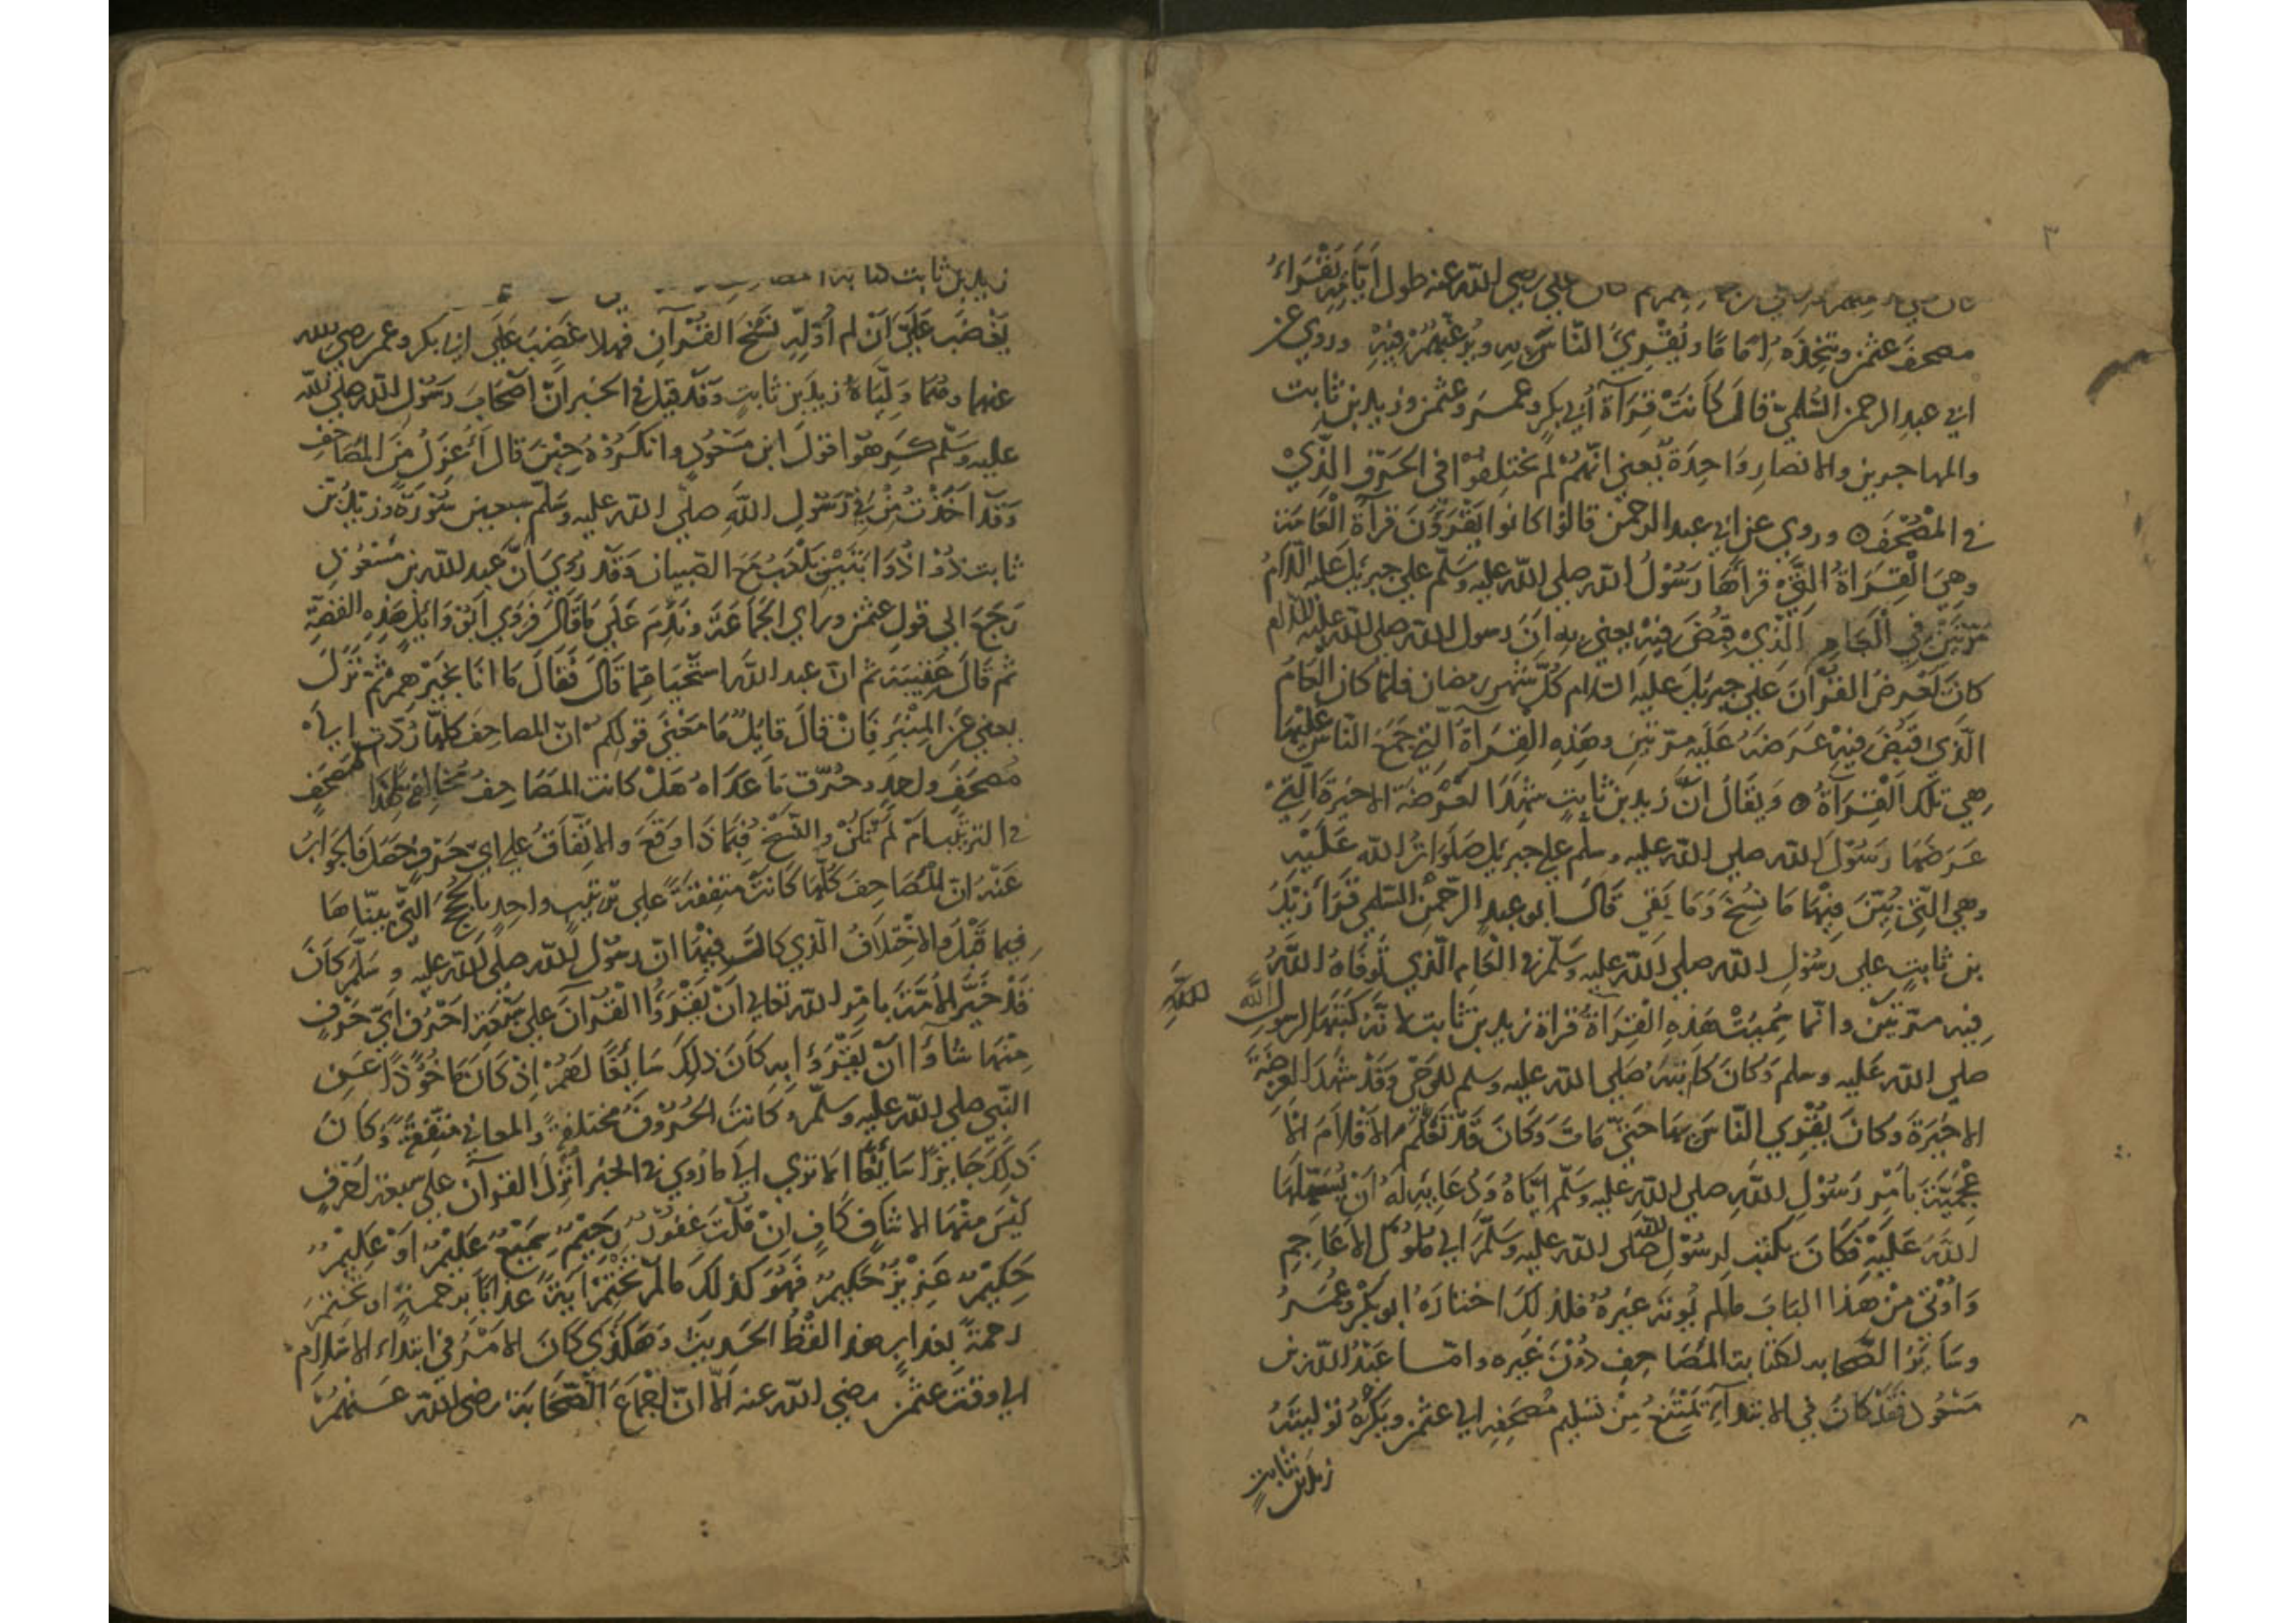 ٣
علي رضي الله عنه طول ايامه يقراء
مصحف عثمن ويتخذه اماما ويقري الناس به ويرغبهم فيه وروي عن
ابي عبد الرحمن السلمي قال كانت قراة ابي بكر وعمر وعثمن وزيد بن ثابت
والمهاجرين والانصار واحدة يعني انهم لم يختلفوا في الحرف الذي
في المصحف ٥ وروي عن ابي عبد الرحمن قالوا كانوا يقرؤن قرآة العامة
وهي القراة التي قراها رسول الله صلي الله عليه وسلم علي جبريل عليه السلام
مرتين في العام الذي قبض فيه يعني به ان رسول الله صلي الله عليه السلام
كان يعرض القرآن علي جبريل عليه السلام كل شهر رمضان فلما كان العام
الذي قبض فيه عرضه عليه مرتين وهذه القراة التي جمع الناس عليها
هي تلك القراة ٥ ويقال ان زيد بن ثابت شهد العرضة الاخيرة التي
عرضها رسول الله صلي الله عليه وسلم علي جبريل صلوات الله عليه
وهي التي بين فيها ما نسخ وما بقي قال ابو عبد الرحمن السلمي قرا زيد
بن ثابت علي رسول الله صلي الله عليه وسلم في العام الذي توفاه الله
فيه مرتين وانما سميت هذه القراة قراة زيد بن ثابت لانه كتبها لرسول الله
صلي الله عليه وسلم وكان كاتبه صلي الله عليه وسلم للوحي وقد شهد العرضة
الاخيرة وكان يقري الناس بها حتي مات وكان قد تعلم الاقلام الا
عجمية بامر رسول الله صلي الله عليه وسلم اياه ودعايه له ان يسهلها
الله عليه فكان يكتب لرسول الله صلي الله عليه وسلم الي ملوك الاعاجم
واوتي من هذا الباب مالم يوته غيره فلذلك اختاره ابو بكر وعمر
وساير الصحابه لكتابة المصاحف دون غيره واما عبد الله بن
مسعود فقد كان في الابتداء يمتنع من تسليم مصحفه الي عثمن ويكره توليته
زيد بن ثابت
زيد بن ثابت كتابة
يغضب علي ان لم اوله نسخ القرآن فهلا غضب علي ابي بكر وعمر رضي الله
عنهما وهما ولياه زيد بن ثابت وقد قيل في الخبر ان اصحاب رسول الله صلي الله
عليه وسلم كرهوا قول ابن مسعود وانكروه حين قال أاعزل من المصاحف
وقد اخذت من في رسول الله صلي الله عليه وسلم سبعين سورة وزيد بن
ثابت ذو ذوابتين يلعب مع الصبيان وقد روي ان عبد الله بن مسعود
رجع الي قول عثمن وراي الجماعة وندم علي ما قال فروي ابو وائل هذه القصة
ثم قال عقيبه ثم ان عبد الله استحيا مما قال فقال ما انا بخيرهم ثم نزل
يعني عن المنبر فان قال قايل ما معني قولكم ان المصاحف كلها ردت الي
مصحف واحد وحرقت ما عداه هل كانت المصاحف مخالفة لهذا المصحف
في الترتيب ام لم تكن والنسخ فيماذا وقع والاتفاق علي اي حرف حصل فالجواب
عنه ان المصاحف كلها كانت متفقة علي ترتيب واحد بالحجج التي بيناها
فيما قبل والاختلاف الذي كانت فيها ان رسول الله صلي الله عليه وسلم كان
قد خير الامة بامر الله تعالي ان يقروا القرآن علي سبعة احرف اي حرف
منها شاؤا ان يقرؤا به كان ذلك سايغا لهم اذ كان ماخوذا عن
النبي صلي الله عليه وسلم وكانت الحروف مختلفة والمعاني متفقة وكان
ذلك جايزا سايغا الا تري الي ما روي في الخبر انزل القرآن علي سبعة احرف
ليس منها الا شاف كاف ان قلت غفور رحيم سميع عليم او عليم
حكيم عزيز حكيم فهو كذلك مالم تختم اية عذاب برحمة او تختم
رحمة بعذاب هذا لفظ الحديث وهكذي كان الامر في ابتداء الاسلام
الي وقت عثمن رضي الله عنه الا ان اجماع الصحابة رضي الله عنهم